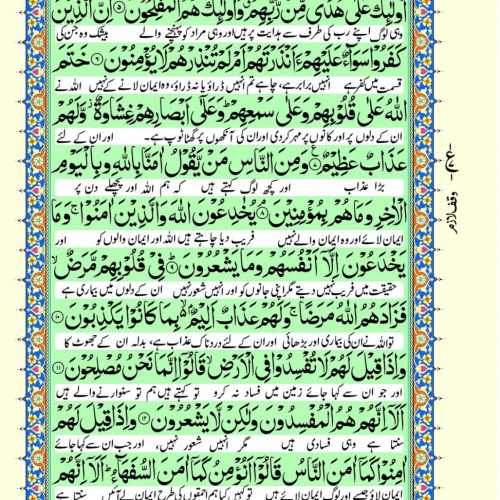 اُولٰٓئِكَ عَلٰى هُدًى مِّنْ رَّبِّهِمْ وَاُولٰٓئِكَ هُمُ الْمُفْلِحُوْنَ ۝۵ اِنَّ الَّذِيْنَ
وہی لوگ اپنے رب کی طرف سے ہدایت پر ہیں اور وہی مراد کو پہنچنے والے بیشک وہ جن کی
كَفَرُوْا سَوَآءٌ عَلَيْهِمْ ءَاَنْذَرْتَهُمْ اَمْ لَمْ تُنْذِرْهُمْ لَا يُؤْمِنُوْنَ ۝۶ خَتَمَ
قسمت میں کفر ہے انہیں برابر ہے، چاہے تم انہیں ڈراؤ یا نہ ڈراؤ، وہ ایمان لانے کے نہیں اللہ نے
اللّٰهُ عَلٰى قُلُوْبِهِمْ وَعَلٰى سَمْعِهِمْ ؕ وَعَلٰٓى اَبْصَارِهِمْ غِشَاوَةٌ ۫ وَّلَهُمْ
ان کے دلوں پر اور کانوں پر مہر کر دی اور ان کی آنکھوں پر گھٹا ٹوپ ہے۔ اور ان کے لئے
عَذَابٌ عَظِيْمٌ ۝۷ وَمِنَ النَّاسِ مَنْ يَّقُوْلُ اٰمَنَّا بِاللّٰهِ وَبِالْيَوْمِ
بڑا عذاب اور کچھ لوگ کہتے ہیں کہ ہم اللہ اور پچھلے دن پر
الْاٰخِرِ وَمَا هُمْ بِمُؤْمِنِيْنَ ۝۸ يُخٰدِعُوْنَ اللّٰهَ وَالَّذِيْنَ اٰمَنُوْا ۚ وَمَا
ایمان لائے اور وہ ایمان والے نہیں فریب دیا چاہتے ہیں اللہ اور ایمان والوں کو اور
يَخْدَعُوْنَ اِلَّآ اَنْفُسَهُمْ وَمَا يَشْعُرُوْنَ ۝۹ فِيْ قُلُوْبِهِمْ مَّرَضٌ ۙ
حقیقت میں فریب نہیں دیتے مگر اپنی جانوں کو اور انہیں شعور نہیں ان کے دلوں میں بیماری ہے
فَزَادَهُمُ اللّٰهُ مَرَضًا ۚ وَلَهُمْ عَذَابٌ اَلِيْمٌۢ ۙ بِمَا كَانُوْا يَكْذِبُوْنَ ۝۱۰
تو اللہ نے ان کی بیماری اور بڑھائی اور ان کے لئے دردناک عذاب ہے، بدلہ ان کے جھوٹ کا
وَاِذَا قِيْلَ لَهُمْ لَا تُفْسِدُوْا فِي الْاَرْضِ ۙ قَالُوْٓا اِنَّمَا نَحْنُ مُصْلِحُوْنَ ۝۱۱
اور جو ان سے کہا جائے زمین میں فساد نہ کرو تو کہتے ہیں ہم تو سنوارنے والے ہیں
اَلَآ اِنَّهُمْ هُمُ الْمُفْسِدُوْنَ وَلٰكِنْ لَّا يَشْعُرُوْنَ ۝۱۲ وَاِذَا قِيْلَ لَهُمْ
سنتا ہے وہی فسادی ہیں مگر انہیں شعور نہیں، اور جب ان سے کہا جائے
اٰمِنُوْا كَمَآ اٰمَنَ النَّاسُ قَالُوْٓا اَنُؤْمِنُ كَمَآ اٰمَنَ السُّفَهَآءُ ؕ اَلَآ اِنَّهُمْ
ایمان لاؤ جیسے اور لوگ ایمان لائے ہیں تو کہیں کیا ہم احمقوں کی طرح ایمان لے آئیں سنتا ہے
وقف لازم